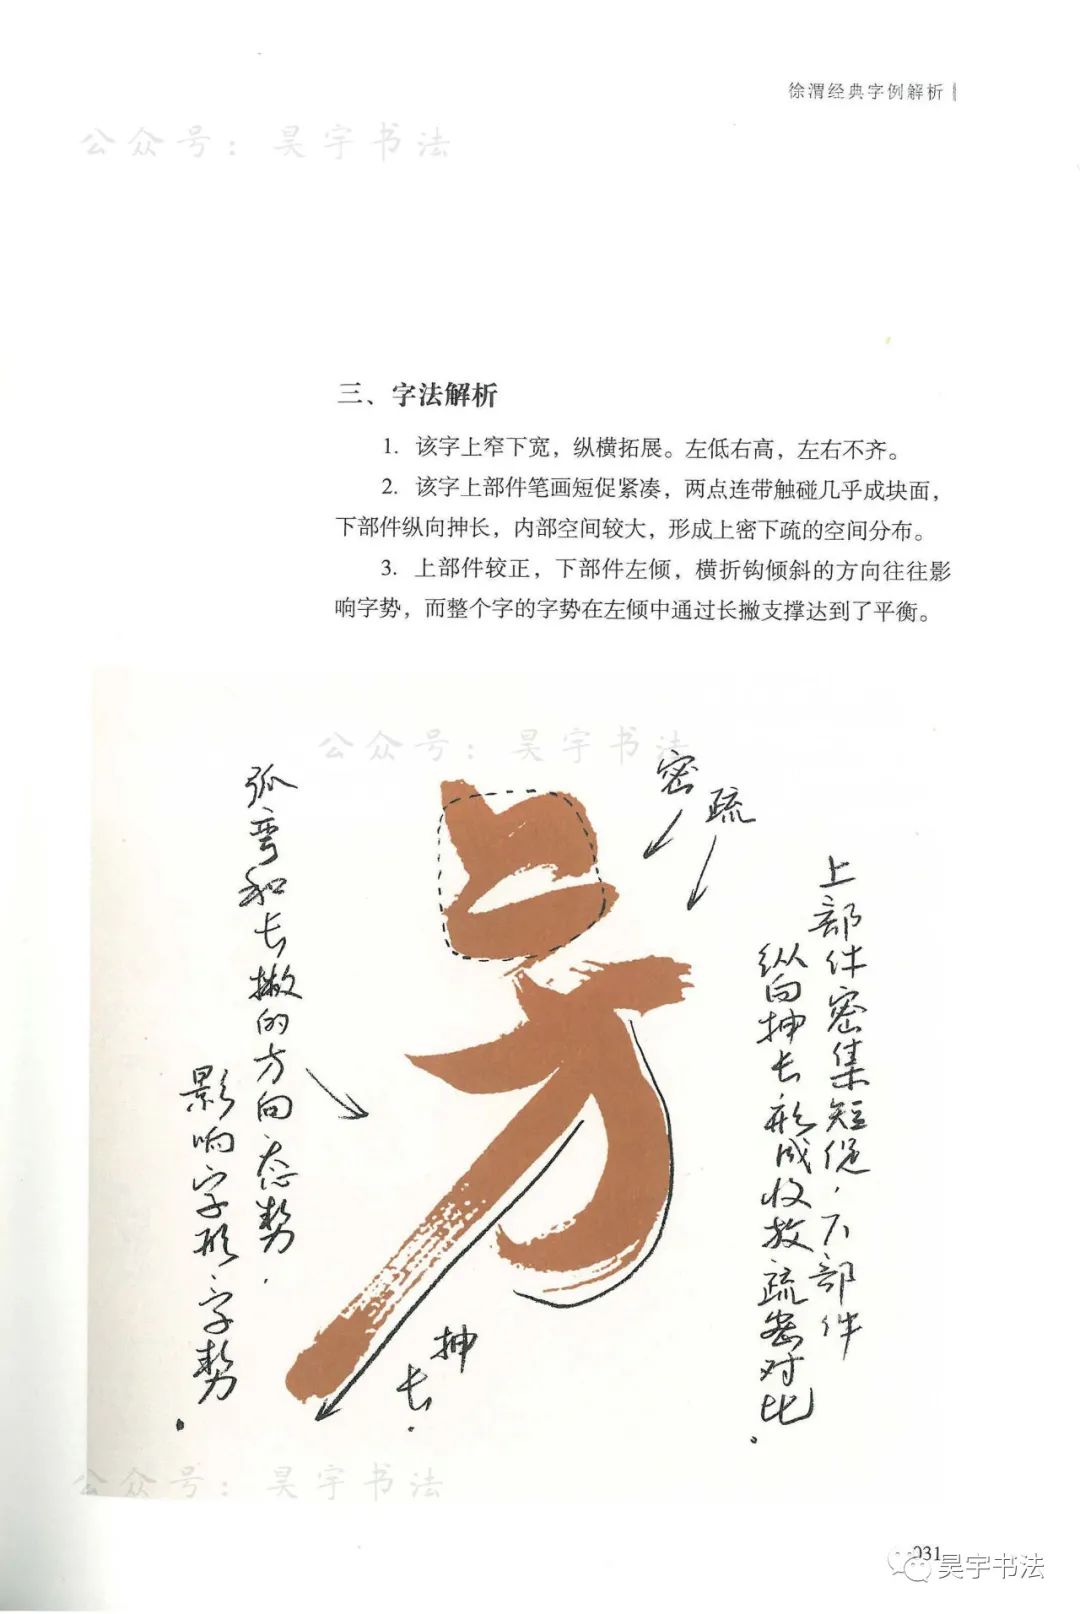 徐渭经典字例解析
公众号：昊宇书法
三、字法解析
1. 该字上窄下宽，纵横拓展。左低右高，左右不齐。
2. 该字上部件笔画短促紧凑，两点连带触碰几乎成块面，
下部件纵向抻长，内部空间较大，形成上密下疏的空间分布。
3. 上部件较正，下部件左倾，横折钩倾斜的方向往往影
响字势，而整个字的字势在左倾中通过长撇支撑达到了平衡。
公众号：昊宇书法
密
疏
上部件密集短促，下部件
纵向抻长形成收放疏密对比。
弧弯和长撇的方向态势，
影响字形字势。
芳
抻
长.
公众号：昊宇书法
031
昊宇书法